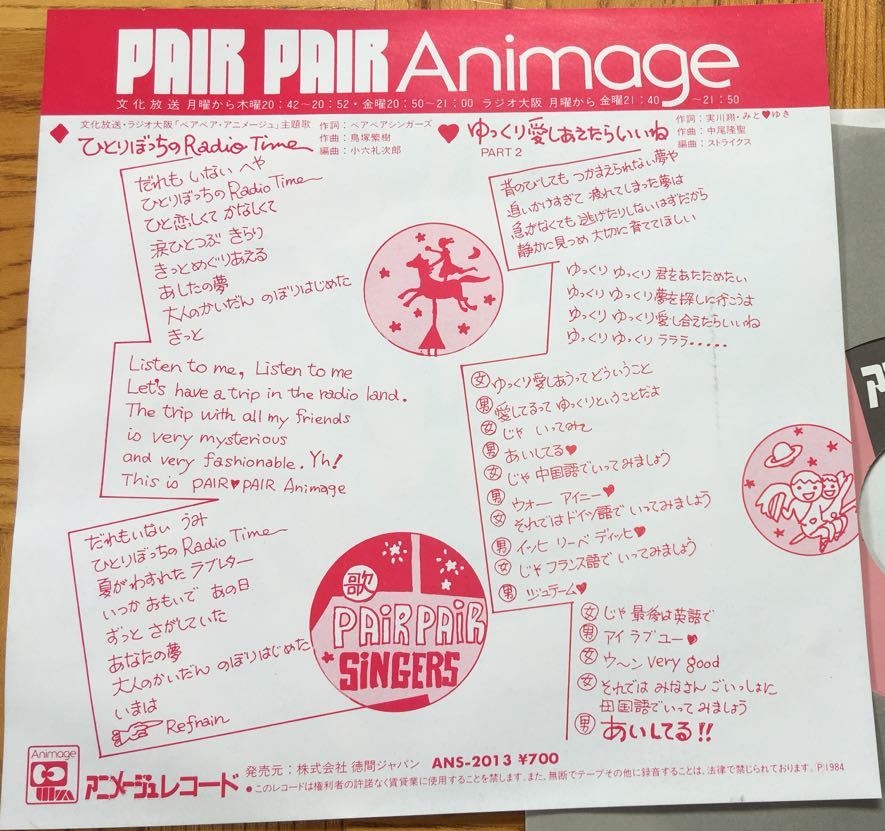 PAIR PAIR Animage
文化放送 月曜から木曜20:42~20:52・金曜20:50~21:00 ラジオ大阪 月曜から 金曜21:40 ~21:50
文化放送・ラジオ大阪「ペアペア・アニメージュ」主題歌
◆ ひとりぼっちのRadio Time
作詞:ペアペアシンガーズ
作曲:鳥塚繁樹
編曲:小六礼次郎
だれも いない へや
ひとりぼっちの Radio Time
ひと恋しくて かなしくて
涙ひとつぶ きらり
きっとめぐりあえる
あしたの夢
大人のかいだん のぼりはじめた
きっと
Listen to me, Listen to me
Let's have a trip in the radio land.
The trip with all my friends
is very mysterious
and very fashionable. Yh!
This is PAIR♥PAIR Animage
だれもいない うみ
ひとりぼっちの Radio Time
夏がわすれた ラブレター
いつか おもいで あの日
ずっと さがしていた
あなたの夢
大人のかいだん のぼりはじめた
いまは
Refrain
歌
PAiRPAiR
SiNGERS
♥ ゆっくり愛しあえたらいいね
PART 2
作詞:実川翔・みと♥ゆき
作曲:中尾隆聖
編曲:ストライクス
背のびしても つかまえられない夢や
追いかけすぎて 疲れてしまった夢は
急がなくても 逃げたりしないはずだから
静かに見つめ 大切に育ててほしい
ゆっくり ゆっくり 君をあたためたい
ゆっくり ゆっくり 夢を探しに行こうよ
ゆっくり ゆっくり 愛し合えたらいいね
ゆっくり ゆっくり ラララ.....
女 ゆっくり愛しあうってどういうこと
男 愛してるって ゆっくりということだよ
女 じゃ いってみて
男 あいしてる♥
女 じゃ 中国語でいってみましょう
男 ウォー アイニー♥
女 それではドイツ語で いってみましょう
男 イッヒ リーベ ディッヒ♥
女 じゃ フランス語で いってみましょう
男 ジュテーム♥
女 じゃ 最後は英語で
男 アイ ラブ ユー♥
女 ウ~ン very good
女 それでは みなさん ごいっしょに
母国語でいってみましょう
男 あいしてる!!
Animage
アニメージュレコード
発売元:株式会社 徳間ジャパン ANS-2013 ¥700
●このレコードは権利者の許諾なく賃貸業に使用することを禁じます。また、無断でテープその他に録音することは、法律で禁じられております。Ⓟ1984